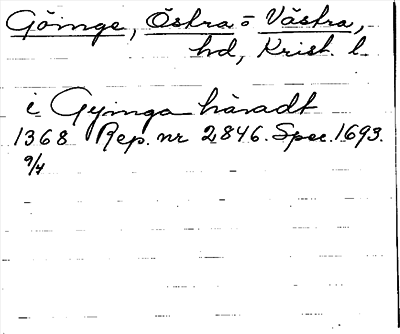 Göinge, Östra o Västra,
hd, Krist. l
i Gyinga håradt
1368 Rep. nr 2846. Spec. 1693.
9/4